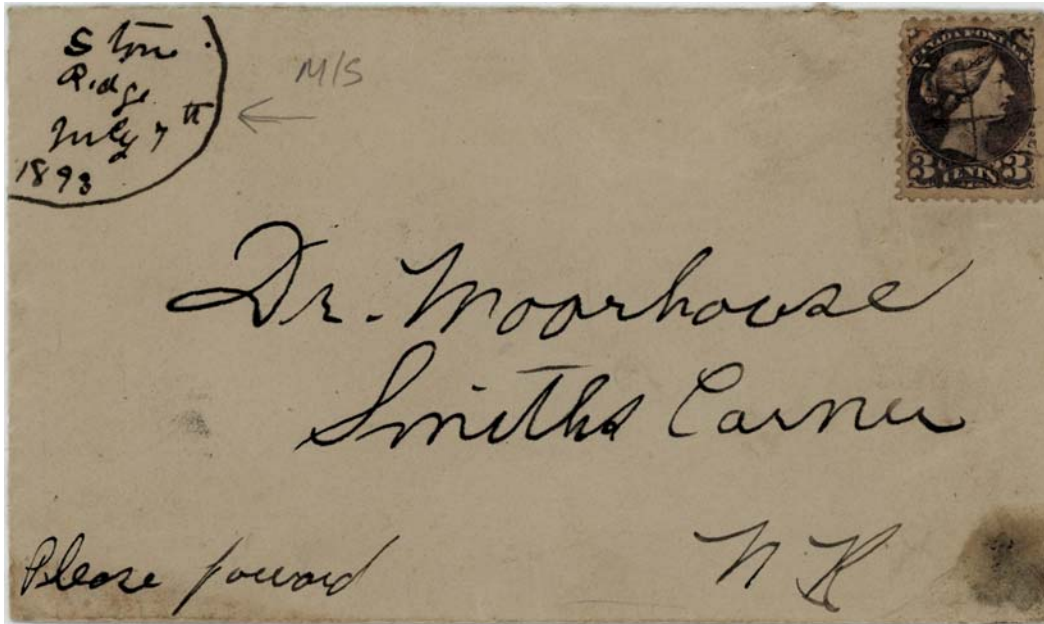 Stone
Ridge
July 7th
1893
M/S
CANADA POSTAGE
3 CENTS 3
Dr. Moorhouse
Smiths Corner
Please forward